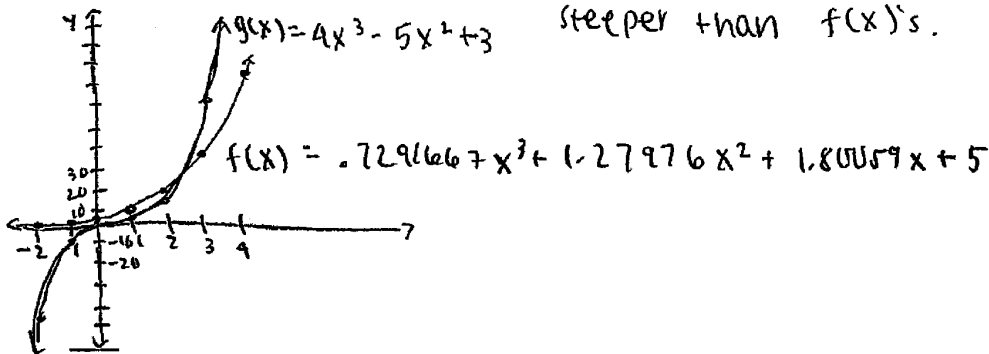 steeper than f(x)'s.
y
g(x) = 4x³ - 5x² + 3
f(x) = .7291667x³ + 1.27976x² + 1.80059x + 5
30
20
10
-2 1 -10 1 2 3 4
-20